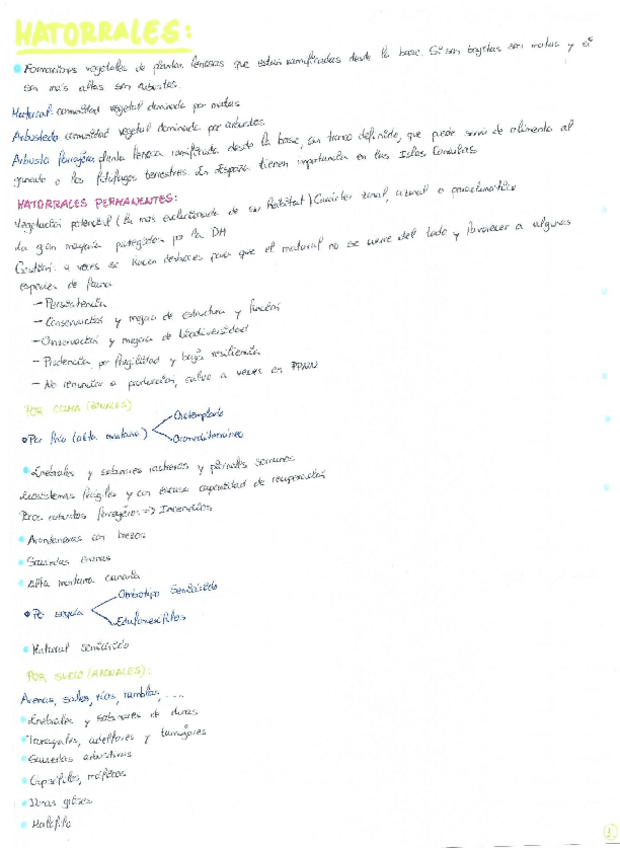 MATORRALES:
Formaciones vegetales de plantas leñosas que están ramificadas desde la base. Si son bajitas son matas y si
son más altas son arbustos.
Matorral: comunidad vegetal dominada por matas
Arbustedo comunidad vegetal dominada por arbustos
Arbusto forrajero: planta leñosa ramificada desde la base, sin tronco definido, que puede servir de alimento al
ganado o los fitófagos terrestres. En España tienen importancia en las Islas Canarias
MATORRALES PERMANENTES:
Vegetación potencial (la más evolucionada de su hábitat) Carácter zonal, azonal o paraclimática
La gran mayoría protegidos por la DH
Gestión: a veces se hacen desbroces para que el matorral no se cierre del todo y favorecer a algunas
especies de fauna
- Persistencia
- Conservación y mejora de estructura y función
- Conservación y mejora de biodiversidad
- Prudencia, por fragilidad y baja resiliencia
- No renunciar a producción, salvo a veces en PPNN
POR CLIMA (ZONALES)
Por frío (alta montaña)
Orotemplado
Oromediterráneo
Enebrales y sabinares rastreros y piornales serranos
Ecosistemas frágiles y con escasa capacidad de recuperación
Pocos arbustos forrajeros => Incendios
Arandaneras con brezos
Saucedas enanas
Alta montaña canaria
Por sequía
Ombrotipo Semiárido
Edafoxerófilos
Matorral semiárido
POR SUELO (AZONALES):
Arenas, sales, ríos, ramblas, ...
Enebrales y sabinares de dunas
Tarayales, adelfares y tamujares
Saucedas arbustivas
Gipsófilos,
Dunas grises
Halófilo
1